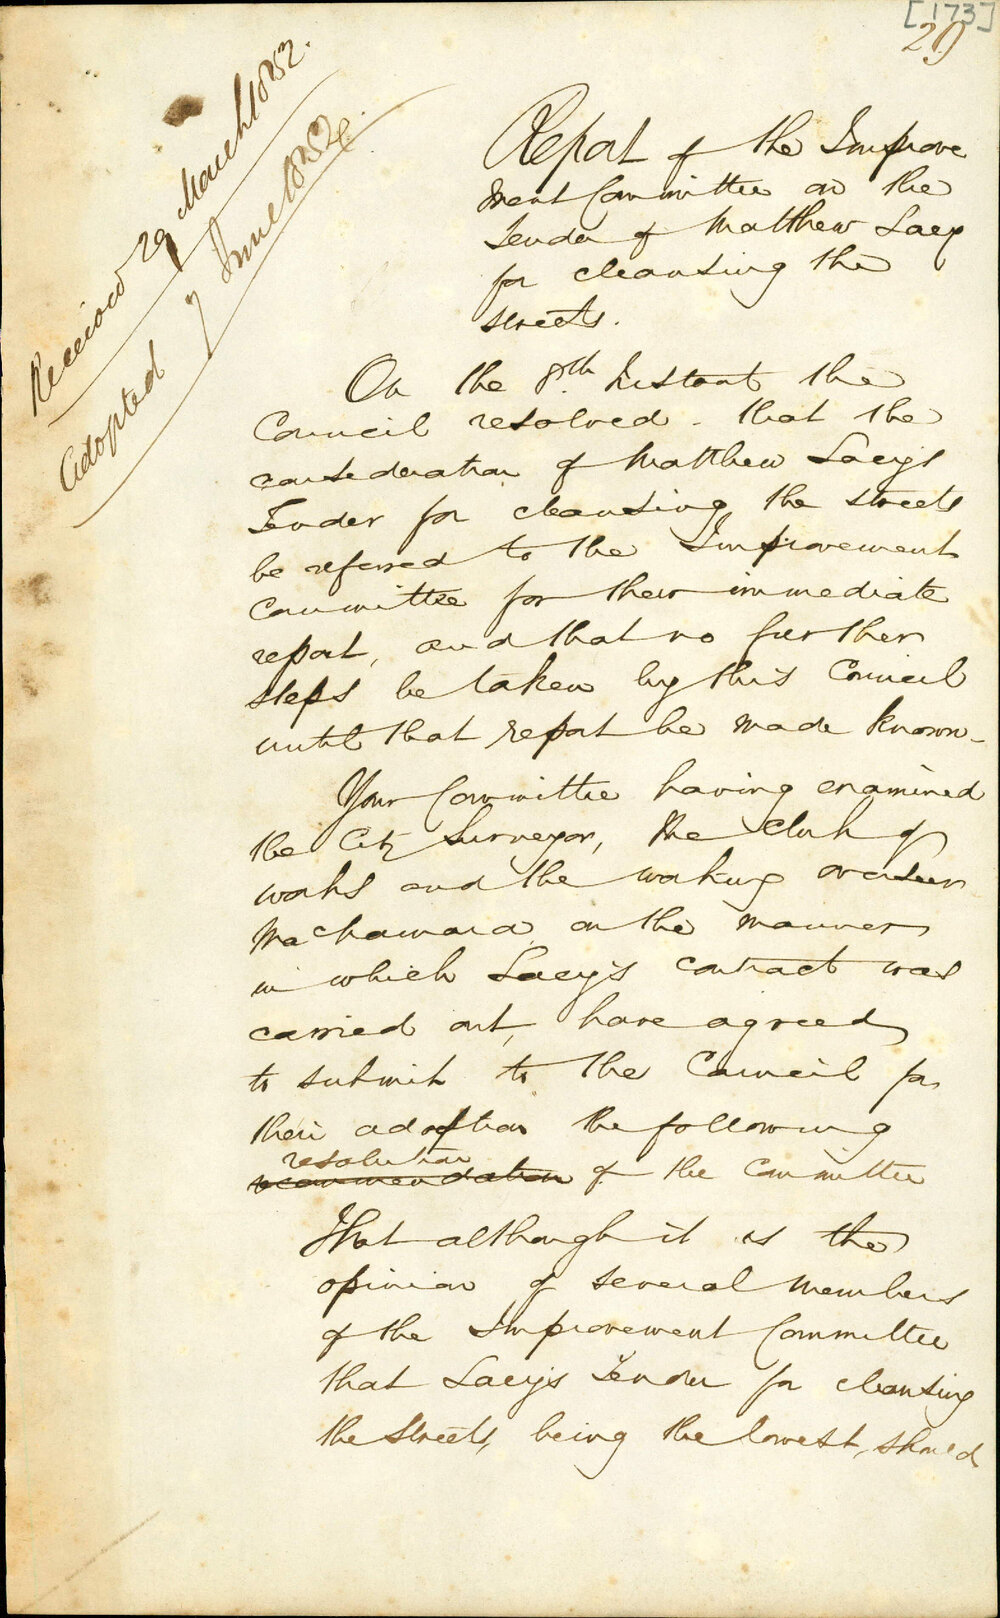 [173]
29
Received 29 March 1852.
Adopted 7 June 1852
Report of the Improve
ment Committee on the
Tender of Matthew Lacy
for cleansing the
streets.
On the 8th Instant the
Council resolved - that the
consideration of Matthew Lacy's
Tender for cleansing the streets
be referred to the Improvement
Committee for their immediate
report, and that no further
steps be taken by this Council
until that report be made known -
Your Committee having examined
the City Surveyor, the Clerk of
works and the working overseer
Machamara on the manner
in which Lacy's contract was
carried out, have agreed
to submit to the Council for
their adoption the following
resolution
recommendation of the Committee
That although it is the
opinion of several members
of the Improvement Committee
that Lacy's Tender for cleansing
the Streets, being the lowest, should